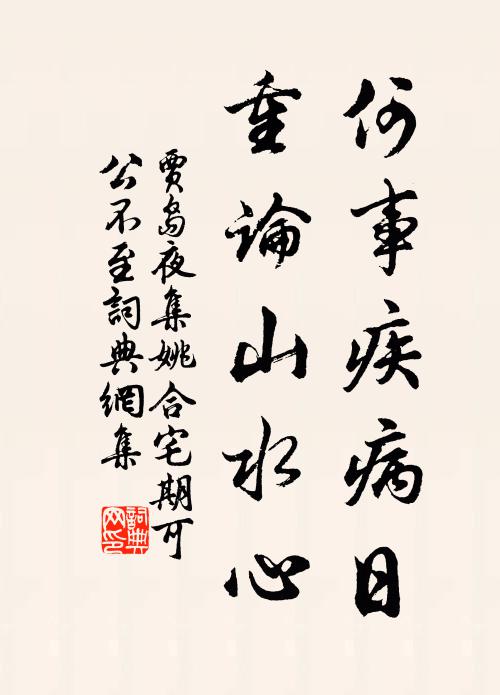 何事疾病日
重論山水心
賈島夜集姚合宅期可
公不至詞典網集
詞典
网印